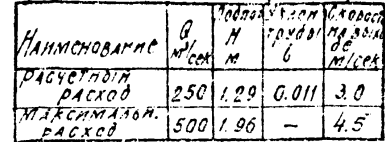 Наименование Q м³/сек Подпор H м Уклон трубы i Скорость на выходе м/сек
Расчетный расход 250 1.29 0.011 3.0
Максимальн. расход 500 1.96 — 4.5